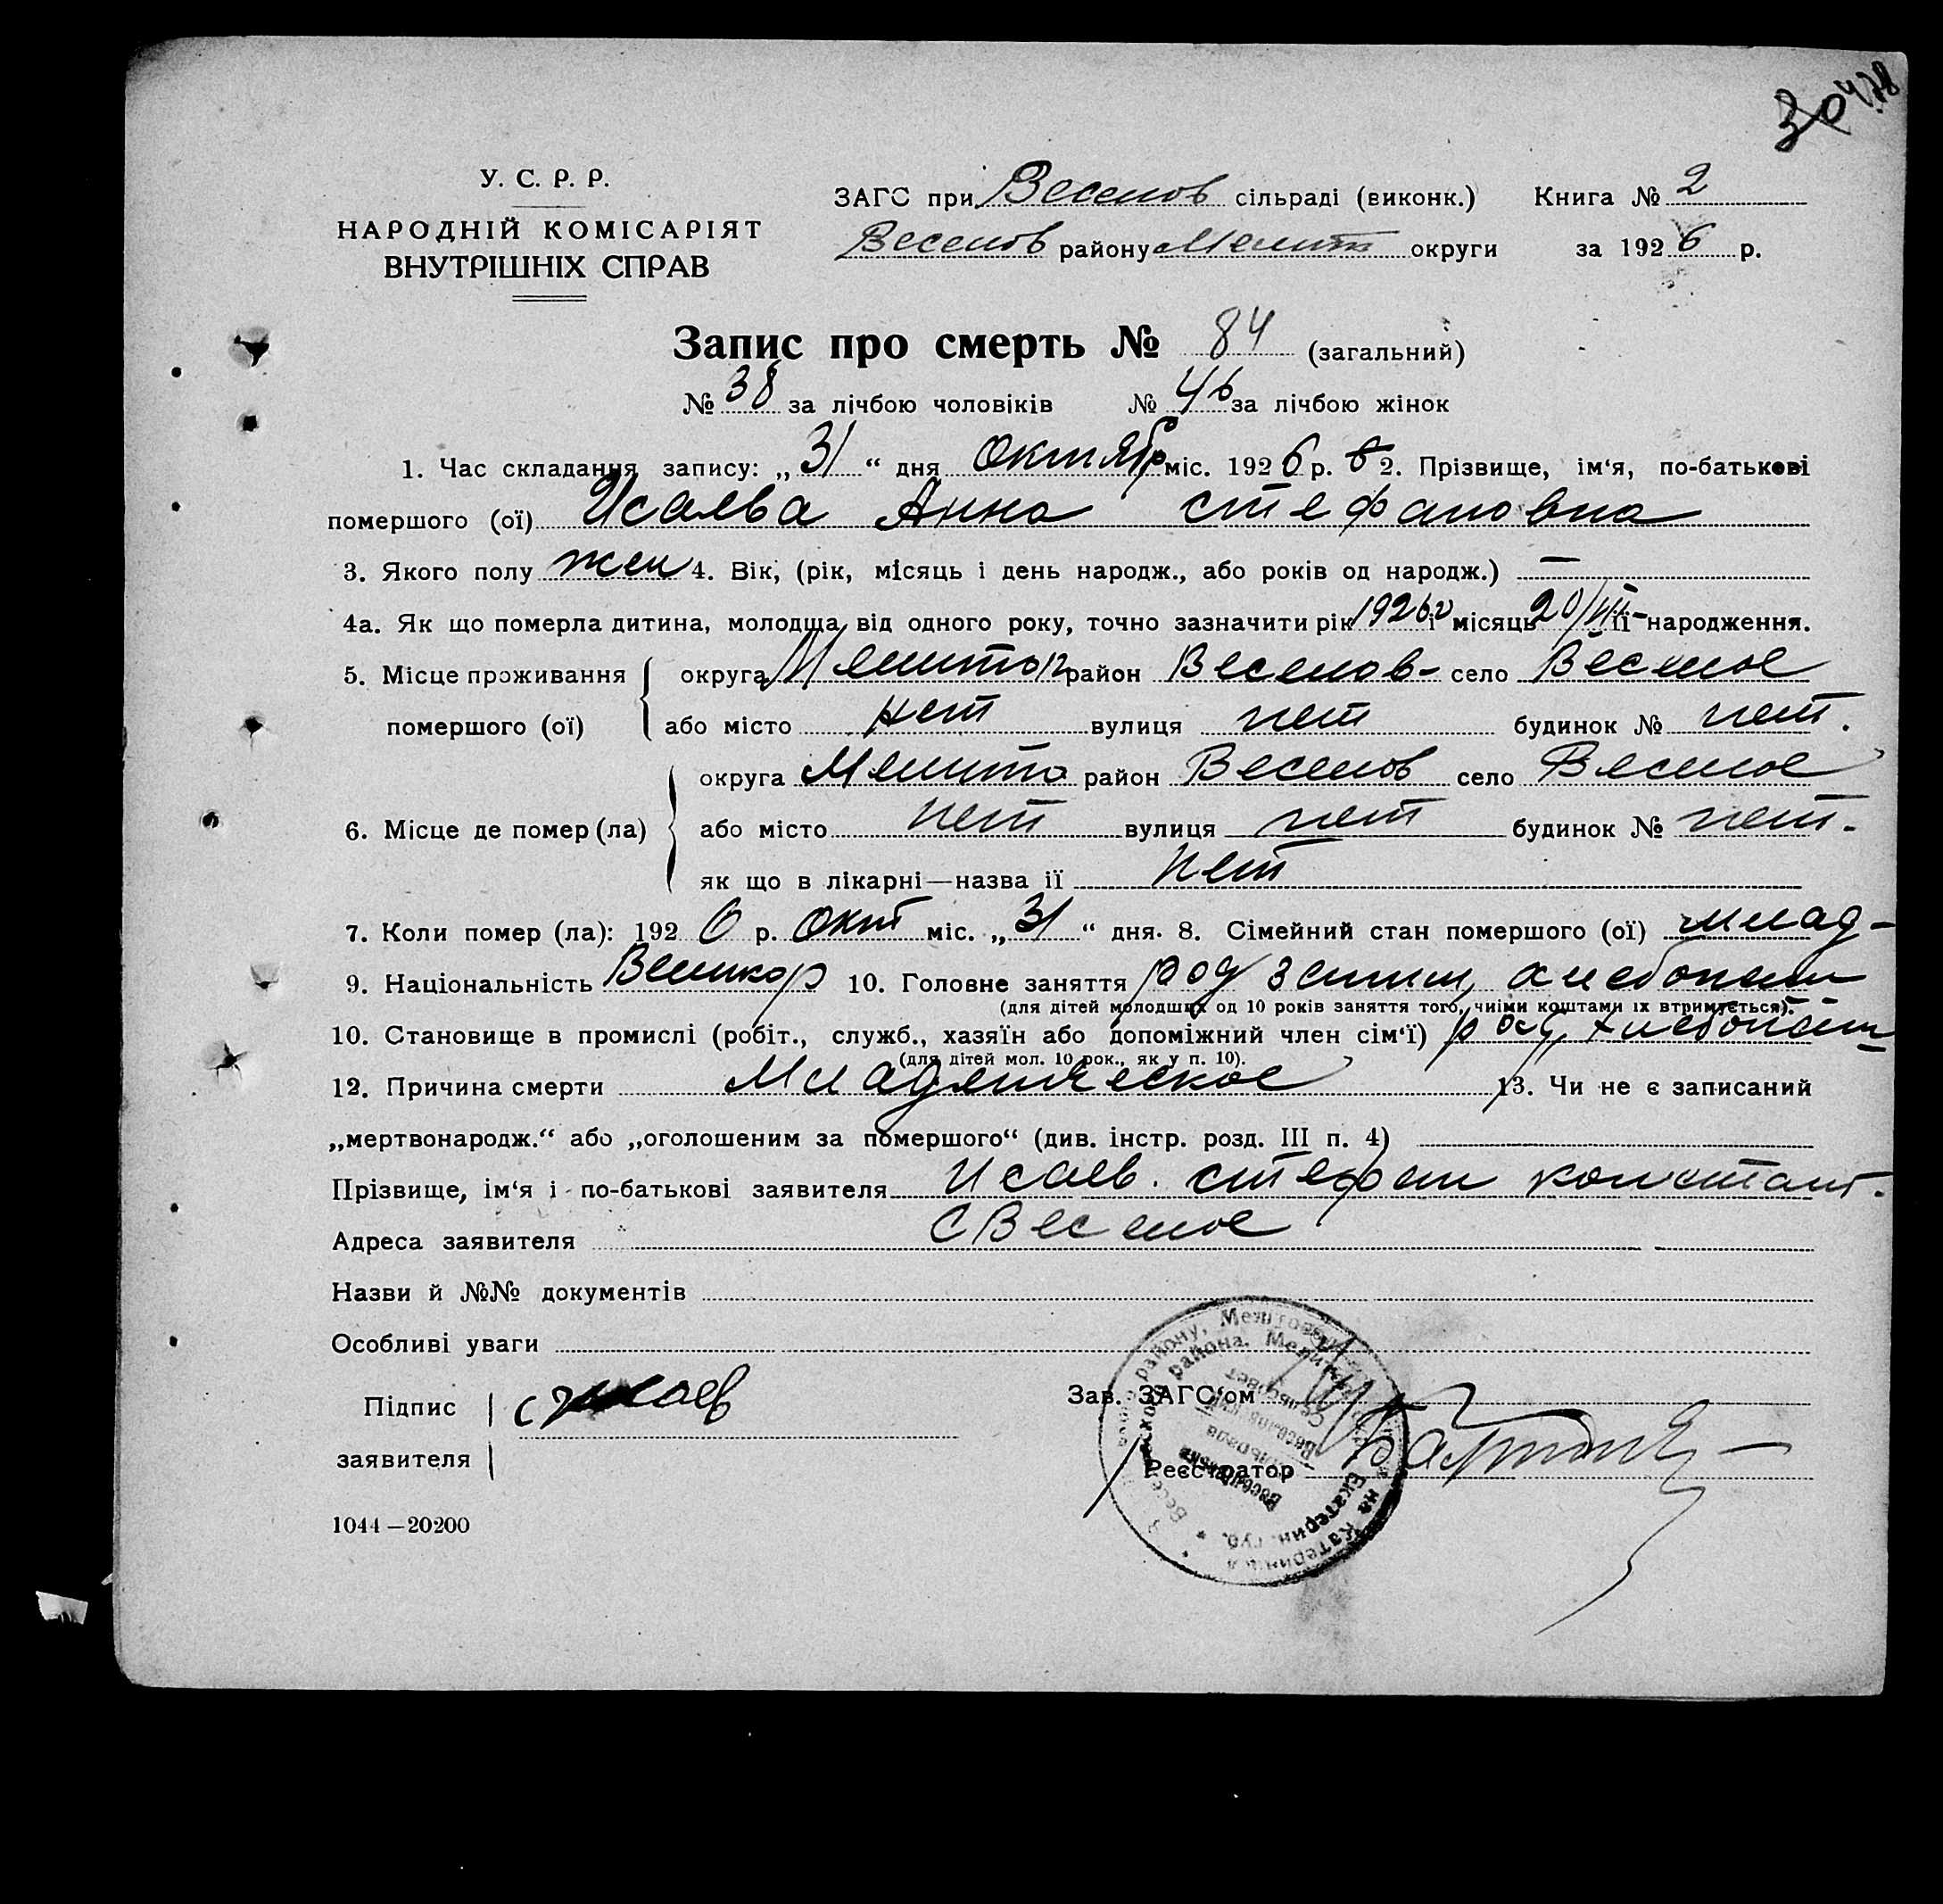 У. С. Р. Р.
НАРОДНІЙ КОМІСАРІЯТ
ВНУТРІШНІХ СПРАВ
ЗАГС при Веселов сільраді (виконк.) Книга № 2
Веселов району Мелит округи за 1926 р.
Запис про смерть № 84 (загальний)
№ 38 за лічбою чоловіків № 46 за лічбою жінок
1. Час складання запису: „31“ дня Октябр міс. 1926 р. 2. Прізвище, ім‘я, по-батькові
помершого (ої) Исаева Анна Стефановна
3. Якого полу жен 4. Вік, (рік, місяць і день народж., або років од народж.) —
4а. Як що померла дитина, молодща від одного року, точно зазначити рік 1926 і місяць 20/ її народження.
5. Місце проживання округа Мелитоп район Веселов- село Веселое
помершого (ої) або місто нет вулиця нет будинок № нет.
округа Мелито район Веселов село Веселое
6. Місце де помер (ла) або місто нет вулиця нет будинок № нет.
як що в лікарні—назва ії нет
7. Коли помер (ла): 1926 р. Окт міс. „31“ дня. 8. Сімейний стан помершого (ої) млад-
9. Національність Великор 10. Головне заняття род хлебопаш
(для дітей молодших од 10 років заняття того, чиїми коштами їх втримується).
10. Становище в промислі (робіт., служб., хазяїн або допоміжний член сім‘ї) род, хлебопаш
(для дітей мол. 10 рок., як у п. 10).
12. Причина смерти Младенческое 13. Чи не є записаний
„мертвонародж.“ або „оголошеним за помершого“ (див. інстр. розд. III п. 4)
Прізвище, ім‘я і по-батькові заявителя Исаев. Стефан констант.
Адреса заявителя С Веселое
Назви й №№ документів
Особливі уваги
Підпис Исаев Зав. ЗАГС‘ом
заявителя Реєстратор
1044—20200